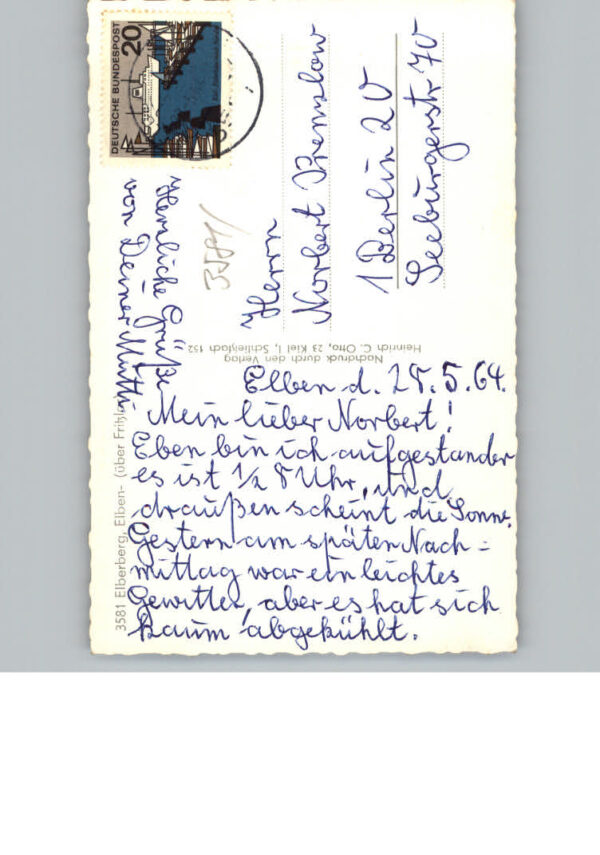 Elben d. 28.5.64.
Mein lieber Norbert!
Eben bin ich aufgestanden
es ist 1/2 8 Uhr, und
draußen scheint die Sonne.
Gestern am späten Nach=
mittag war ein leichtes
Gewitter, aber es hat sich
kaum abgekühlt.
Herzliche Grüße
von Deiner Mutti
Herrn
Norbert Prenslow
1 Berlin 20
Seeburgerstr 70
3581/
DEUTSCHE BUNDESPOST
20
Nachdruck durch den Verlag
Heinrich C. Otto, 23 Kiel 1, Schließfach 152
3581 Elberberg, Elben- (über Fritzlar)